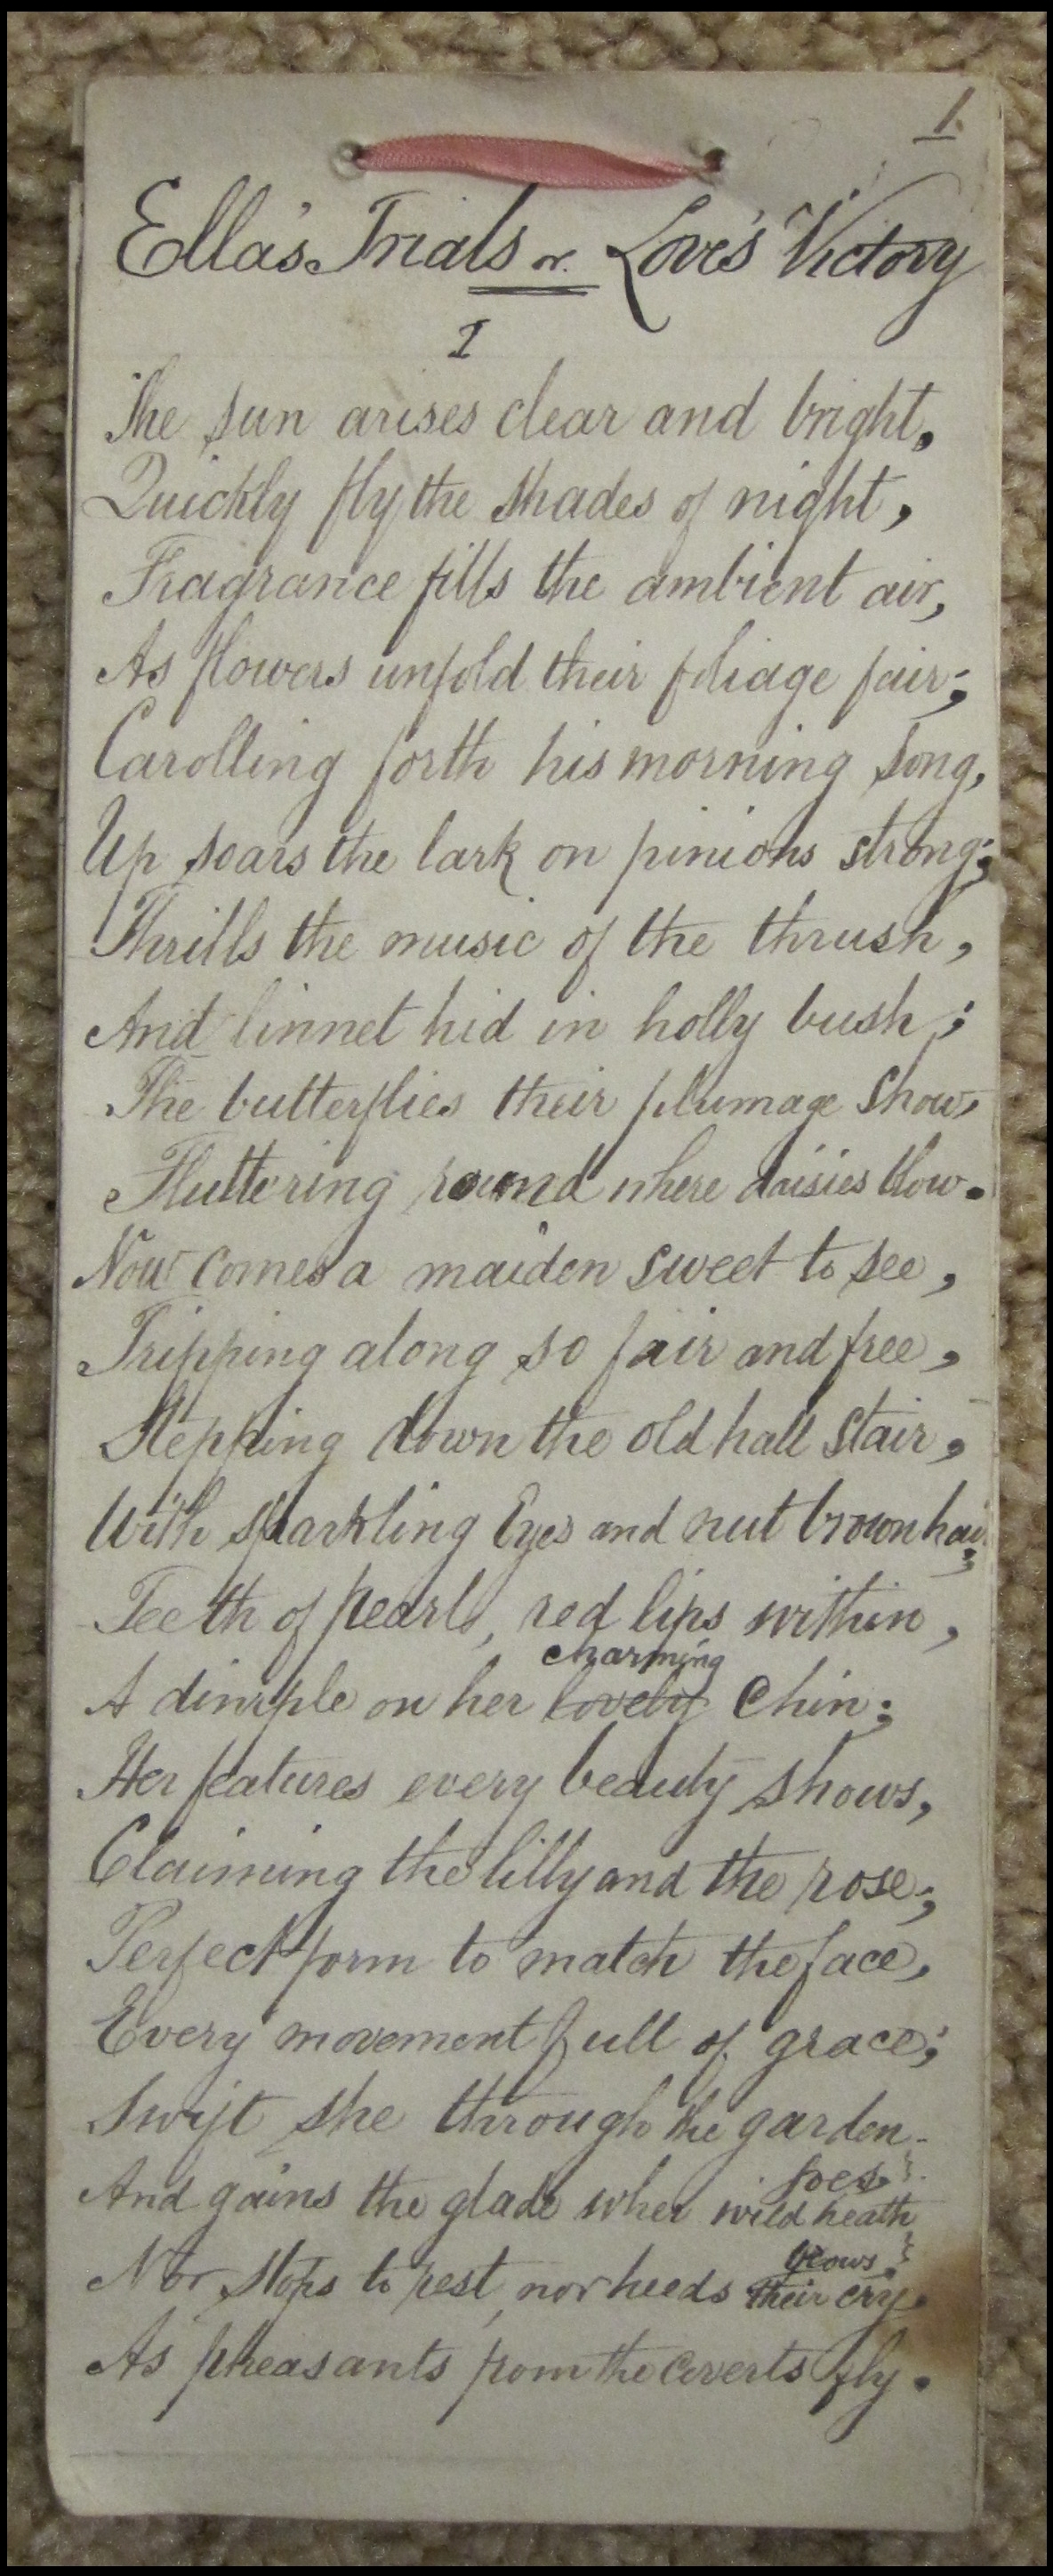 1.
Ella's Trials or. Love's Victory
I
The sun arises clear and bright,
Quickly fly the shades of night,
Fragrance fills the ambient air,
As flowers unfold their foliage fair;
Carolling forth his morning song,
Up soars the lark on pinions strong;
Thrills the music of the thrush,
And linnet hid in holly bush;
The butterflies their plumage show,
Fluttering round where daisies blow.
Now comes a maiden sweet to see,
Tripping along so fair and free,
Stepping down the old hall stair,
With sparkling Eyes and nut brown hair;
Teeth of pearl, red lips within,
charming
A dimple on her lovely chin;
Her features every beauty shows,
Claiming the lilly and the rose;
Perfect form to match the face,
Every movement full of grace;
Swift she through the garden
goes
And gains the glade wher wild heath
grows
Nor stops to rest, nor heeds their cry.
As pheasants from the coverts fly.